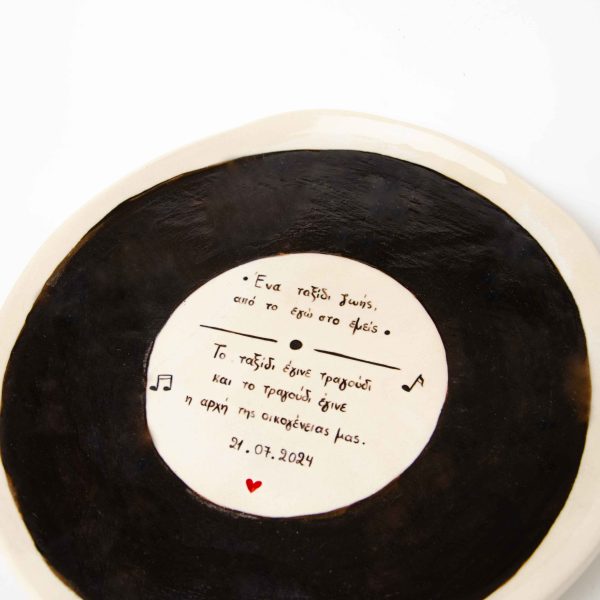 • Ένα ταξίδι ζωής,
από το εγώ στο εμείς •
Το ταξίδι έγινε τραγούδι
και το τραγούδι έγινε
η αρχή της οικογένειας μας.
21.07.2024